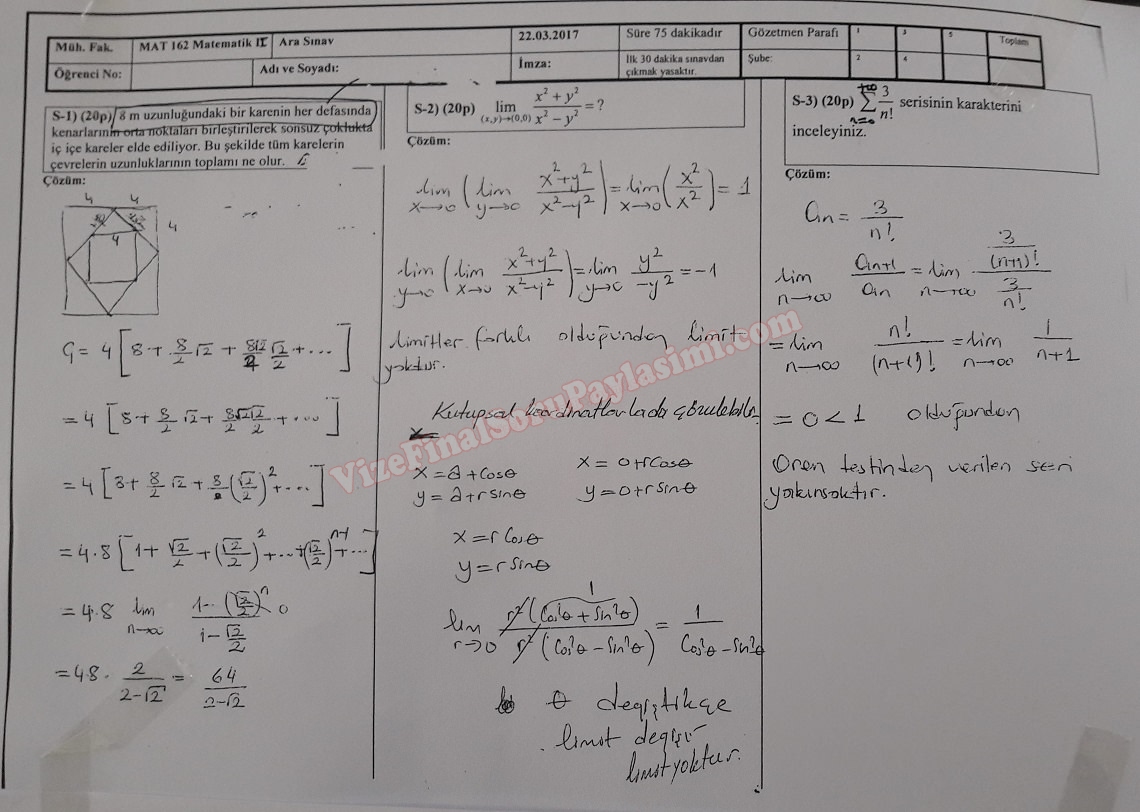 Müh. Fak. MAT 162 Matematik II Ara Sınav 22.03.2017 Süre 75 dakikadır Gözetmen Parafı 1 3 5 Toplam
Öğrenci No: Adı ve Soyadı: İmza: İlk 30 dakika sınavdan çıkmak yasaktır. Şube: 2 4
S-1) (20p) 8 m uzunluğundaki bir karenin her defasında
kenarlarının orta noktaları birleştirilerek sonsuz çoklukta
iç içe kareler elde ediliyor. Bu şekilde tüm karelerin
çevrelerin uzunluklarının toplamı ne olur.
Çözüm:
4 4
4
4
Ç = 4 [8 + 8/2 √2 + 8√2/2 √2/2 + ...]
= 4 [8 + 8/2 √2 + 8√2√2/2 2 + ...]
= 4 [8 + 8/2 √2 + 8 (√2/2)^2 + ...]
= 4.8 [1 + √2/2 + (√2/2)^2 + ... + (√2/2)^n-1 + ...]
= 4.8 lim n→∞ 1 - (√2/2)^n 0 / 1 - √2/2
= 4.8 . 2/2-√2 = 64/2-√2
S-2) (20p) lim (x,y)→(0,0) x² + y² / x² - y² = ?
Çözüm:
lim x→0 (lim y→0 x²+y² / x²-y²) = lim x→0 (x²/x²) = 1
lim y→0 (lim x→0 x²+y² / x²-y²) = lim y→0 y²/-y² = -1
Limitler farklı olduğundan limit
yoktur.
Kutupsal koordinatlarlada çözülebilir
x = a + Cosθ x = 0 + rCosθ
y = a + r sinθ y = 0 + r Sinθ
x = r Cosθ
y = r Sinθ
lim r→0 r² (Cos²θ + Sin²θ) 1 / r² (Cos²θ - Sin²θ) = 1 / Cos²θ - Sin²θ
θ değiştikçe
limit değişir
limit yoktur.
S-3) (20p) +∞ ∑ n=0 3/n! serisinin karakterini
inceleyiniz.
Çözüm:
an = 3/n!
lim n→∞ an+1/an = lim n→∞ 3/(n+1)! / 3/n!
= lim n→∞ n!/(n+1)! = lim n→∞ 1/n+1
= 0 < 1 olduğundan
Oran testinden verilen seri
yakınsaktır.
VizeFinalSoruPaylasimi.com